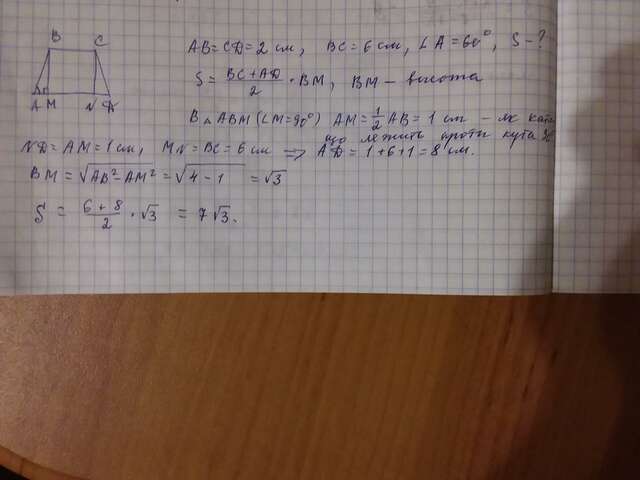 B C
A M N D
AB=CD=2 см, BC=6 см, ∠A=60°, S-?
S = (BC+AD)/2 · BM, BM - высота
В △ ABM (∠M=90°) AM = 1/2 AB = 1 см - як кате
що лежить проти кута 30
ND=AM=1 см, MN=BC=6 см => AD=1+6+1=8 см.
BM = √(AB²-AM²) = √(4-1) = √3
S = (6+8)/2 · √3 = 7√3.